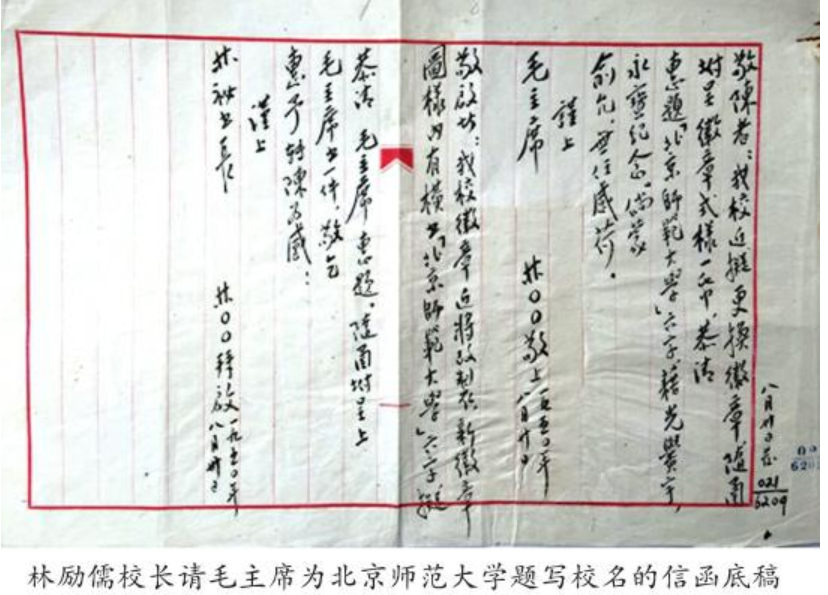 敬陳者：我校近擬更換徽章，随函
坿呈徽章式樣一帋，恭请
惠題「北京師範大學」六字，藉光黌宇，
永寶紀念，倘蒙
俞允，無任感荷。
謹上
毛主席
林〇〇敬上 一九五〇年八月卅日
敬啟者：我校徽章近將改制，新徽章
圖樣内有横书「北京師範大學」六字，擬
恭请 毛主席惠題。随函坿呈上
毛主席书一件，敬乞
惠予轉陳为感：
謹上
林祕书長
林〇〇拜啟 一九五〇年八月卅日
八月卅日发
021
6209
林励儒校长请毛主席为北京师范大学题写校名的信函底稿